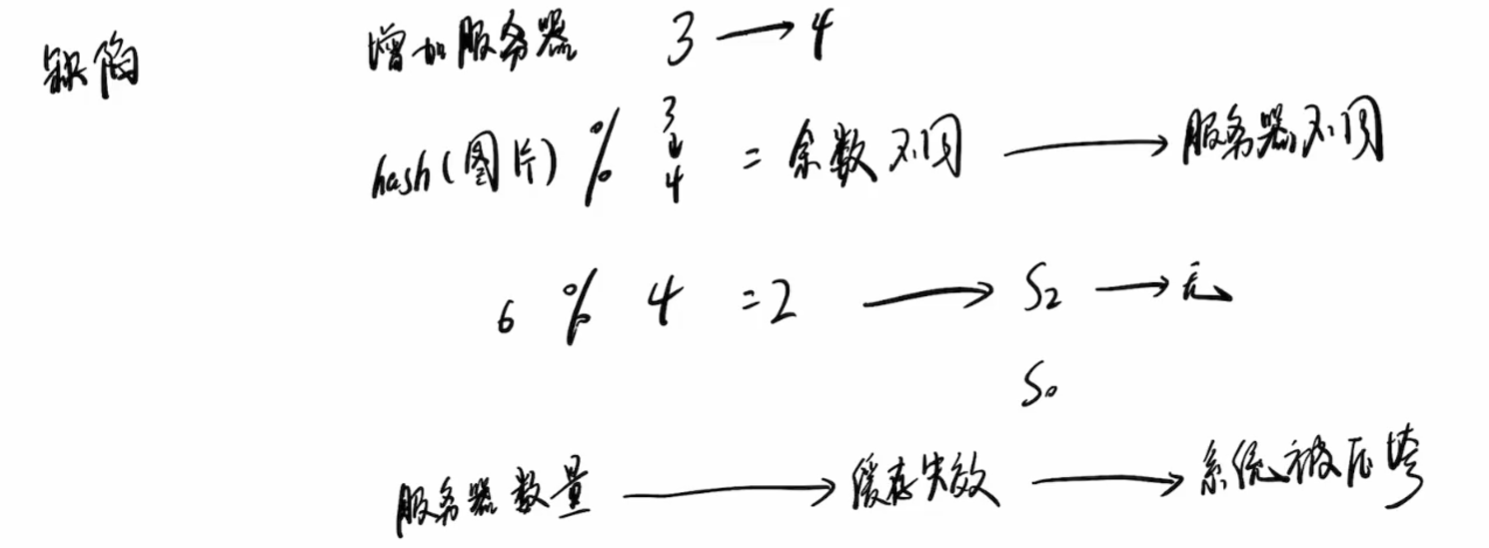 缺陷 增加服务器 3 → 4
hash(图片) % 3↓4 = 余数不同 → 服务器不同
6 % 4 = 2 → S2 → 无
S0
服务器数量 → 缓存失效 → 系统被压垮